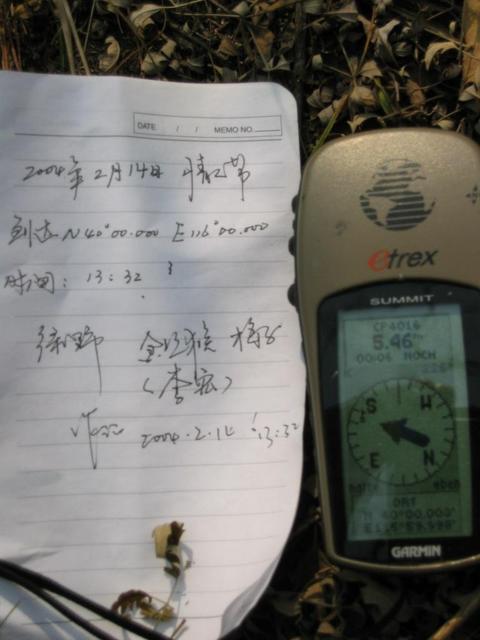 DATE / / MEMO NO.
2004年2月14日 情人节
到达 N40°00.000 E116°00.000
时间：13:32
(李宏)
2004.2.14 13:32
etrex
SUMMIT
CP4016
5.46
00:06 NOCH
S W
E N
ORT
N 40°00.003'
E115°59.998'
GARMIN